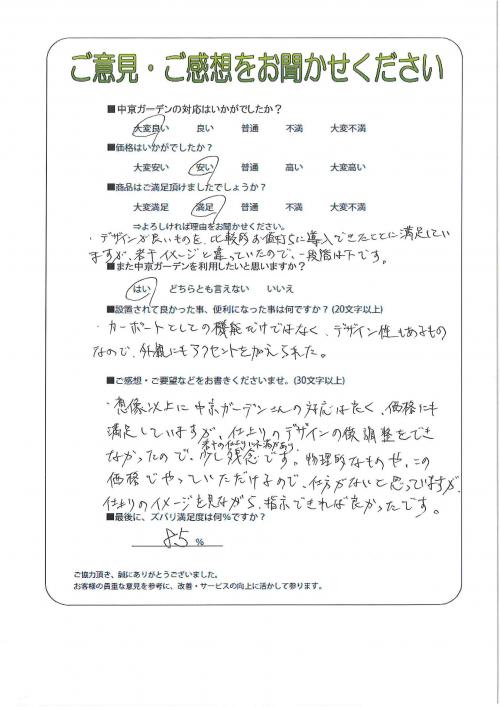 ご意見・ご感想をお聞かせください
■中京ガーデンの対応はいかがでしたか？
大変良い 良い 普通 不満 大変不満
■価格はいかがでしたか？
大変安い 安い 普通 高い 大変高い
■商品はご満足頂けましたでしょうか？
大変満足 満足 普通 不満 大変不満
⇒よろしければ理由をお聞かせください。
・デザインが良いものを、比較的お値打ちに導入できたことに満足してい
ますが、若干イメージと違っていたので、一段階は下です。
■また中京ガーデンを利用したいと思いますか？
はい どちらとも言えない いいえ
■設置されて良かった事、便利になった事は何ですか？(20文字以上)
・カーポートとしての機能だけではなく、デザイン性もあるもの
なので、外観にもアクセントを加えられた。
■ご感想・ご要望などをお書きくださいませ。(30文字以上)
・想像以上に中京ガーデンさんの対応は良く、価格にも
満足していますが、仕上りのデザインの微調整をでき
若干の仕上りに不満があり、
なかったので、少し残念です。物理的なものや、この
価格でやっていただけるので、仕方がないと思っていますが、
仕上りのイメージを見ながら、指示できれば良かったです。
■最後に、ズバリ満足度は何％ですか？
85 %
ご協力頂き、誠にありがとうございました。
お客様の貴重な意見を参考に、改善・サービスの向上に活かして参ります。